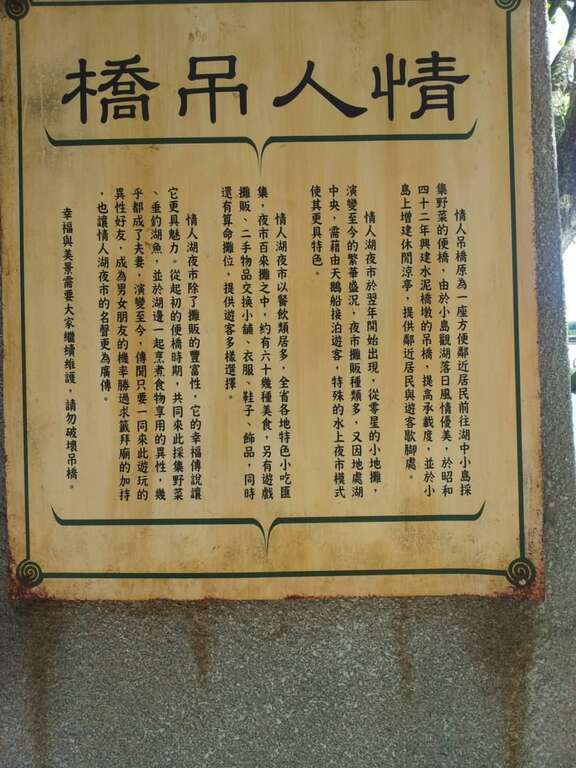 情人吊橋
情人吊橋原為一座方便鄰近居民前往湖中小島採
集野菜的便橋，由於小島觀湖落日風情優美，於昭和
四十二年興建水泥橋墩的吊橋，提高承載度，並於小
島上增建休閒涼亭，提供鄰近居民與遊客歇腳處。
情人湖夜市於翌年開始出現，從零星的小地攤，
演變至今的繁華盛況，夜市攤販種類多，又因地處湖
中央，需藉由天鵝船接泊遊客，特殊的水上夜市模式
使其更具特色。
情人湖夜市以餐飲類居多，全省各地特色小吃匯
集，夜市百來攤之中，約有六十幾種美食，另有遊戲
攤販、二手物品交換小舖、衣服、鞋子、飾品，同時
還有算命攤位，提供遊客多樣選擇。
情人湖夜市除了攤販的豐富性，它的幸福傳說讓
它更具魅力。從起初的便橋時期，共同來此採集野菜
、垂釣湖魚，並於湖邊一起烹煮食物享用的異性，幾
乎都成了夫妻，演變至今，傳聞只要一同來此遊玩的
異性好友，成為男女朋友的機率勝過求籤拜廟的加持
，也讓情人湖夜市的名聲更為廣傳。
幸福與美景需要大家繼續維護，請勿破壞吊橋。